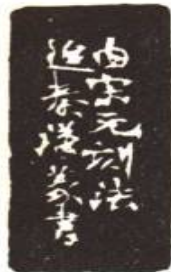 由宋元刻法
追秦漢篆書